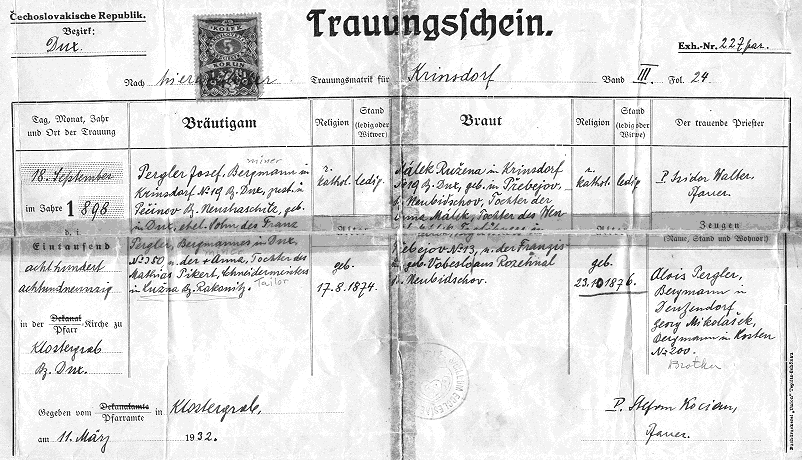 Čechoslovakische Republik.
Bezirk:
Dux.
KOLEK
5
KORUN
Trauungsschein.
Exh.-Nr. 227 par.
Nach Trauungsmatrik für Krinsdorf Band III. Fol. 24
Tag, Monat, Jahr
und Ort der Trauung
Bräutigam
Religion
Stand
(ledig oder
Witwer)
Braut
Religion
Stand
(ledig oder
Witwe)
Der trauende Priester
18. September
im Jahre 1898
d. i.
Eintausend
achthundert
achtundneunzig
in der Dekanal Kirche zu
Pfarr
Klostergrab
Bz. Dux.
miner
Pergler Josef, Bergmann in
Krinsdorf No 19 Bz. Dux, zust. in
Pečinov Bz. Neustraschitz, geb.
in Dux, ehel. Sohn des Franz
Pergler, Bergmannes in Dux
No 350 u. der + Anna, Tochter des
Mathias Pikert, Schneidermeisters
in Lužna Bz. Rakonitz.
Tailor
kathol.
ledig.
Alter
geb.
17.8.1874.
Málek Ružena in Krinsdorf
No 19 Bz. Dux, geb. in Třebejov,
Neubidschov, Tochter der
Málek, Tochter des
No 13, u. der Franzis
geb. aus
Neubidschov.
kathol.
ledig
Alter
geb.
23.10.1876.
P. Isidor Walter,
Pfarrer.
Zeugen
(Name, Stand und Wohnort)
Alois Pergler,
Bergmann in
Georg Mikolášek,
Bergmann in Kosten
No 200.
Brother
Gegeben vom Dekanalamte Klostergrab,
Pfarramte
am 11. März 1932.
P. Stefan Kocian,
Pfarrer.